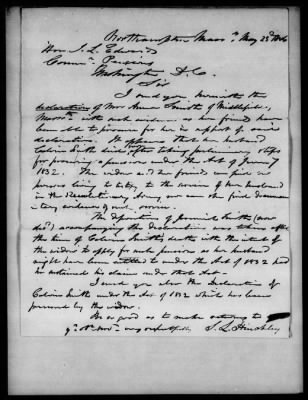 Northampton Mass. May 23d
Hon. J. L. Edwards
Comr. Pensions
Washington D.C.
Sir
I send you herewith the
declaration of Mrs Smith of Middlefield,
Massts. with such evidence as her friends have
been able to procure for her in support of said
declaration. It appears that her husband
Calvin Smith died after taking preliminary steps
for procuring a pension under the Act of June 7
1832. The widow and her friends can find no
persons living to testify to the service of her husband
in the Revolutionary Army nor can she find documen-
tary evidence of such service.
The deposition of Jeremiah Smith (now
dec'd) accompanying the declaration was taken after
the time of Calvin Smith's death with the intent of
the widow to apply for such pension as her husband
might have been entitled to under the Act of 1832 had
he sustained his claim under that Act.
I send you also the Declaration of
Calvin Smith under the Act of 1832 which has been
preserved by the widow.
Be so good as to make
yr. Obt. Servt. very respectfully S. L. Hinckley